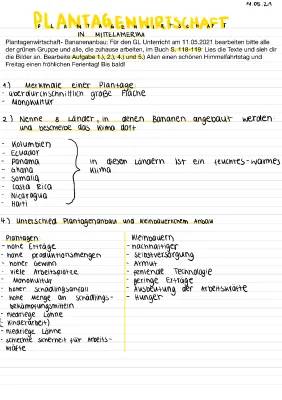 11.05.21
PLANTAGENWIRTSCHAFT
IN MITTELAMERIKA
Plantagenwirtschaft- Bananenanbau: Für den GL Unterricht am 11.05.2021 bearbeiten bitte alle
der grünen Gruppe und alle, die zuhause arbeiten, im Buch S. 118-119. Lies die Texte und sieh dir
die Bilder an. Bearbeite Aufgabe 1.), 2.), 4.) und 5.) Allen einen schönen Himmelfahrtstag und
Freitag einen fröhlichen Ferientag! Bis bald!
1.) Merkmale einer Plantage
- überdurchschnittlich große Fläche
- Monokultur
2.) Nenne 8 Länder, in denen Bananen angebaut werden
und beschreibe das Klima dort
- Kolumbien
- Ecuador
- Panama
- Ghana
- Somalia
- Costa Rica
- Nicaragua
- Haiti
in diesen Ländern ist ein feuchtes-warmes
Klima
4.) Unterschied Plantagenanbau und Kleinbäuerlichem Anbau
Plantagen:
- hohe Erträge
- hohe Produktionsmengen
- hoher Gewinn
- viele Arbeitsplätze
- Monokultur
- hoher Schädlingsanfall
- hohe Menge an Schädlings-
bekämpfungsmitteln
- niedriege Löhne
( Kinderarbeit)
- niedriege Löhne
- schlechte Sicherheit für Arbeits-
kräfte
Kleinbauern:
- nachhaltiger
- Selbstversorgung
- Armut
- fehlende Technologie
- geringe Erträge
- Ausbeutung der Arbeitskräfte
- Hunger